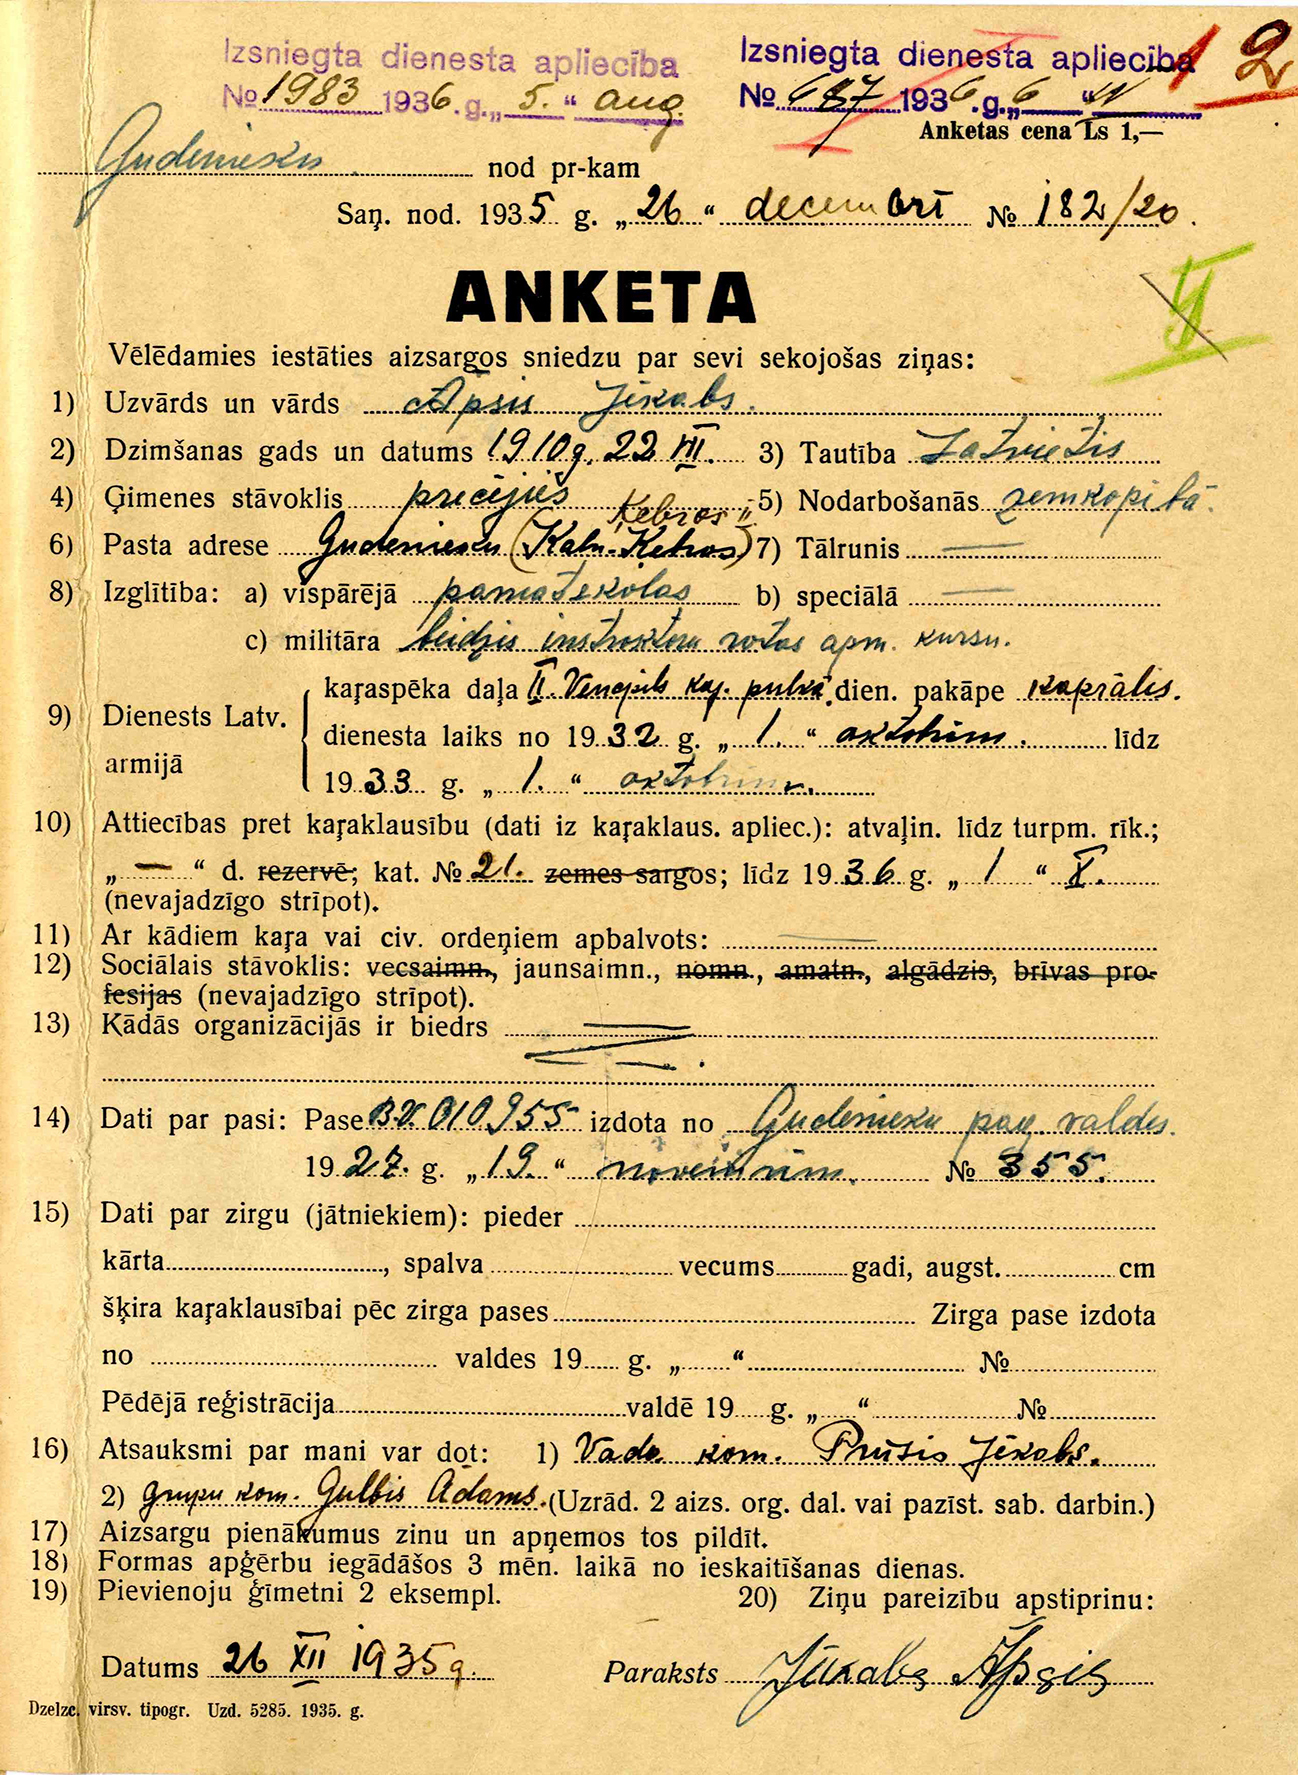 Izsniegta dienesta apliecība
№ 1983 1936. g. „ 5. “ aug.
Izsniegta dienesta apliecība
№ 687 1936. g. „ 6 “
2
Anketas cena Ls 1,—
Gudenieku nod pr-kam
Saņ. nod. 1935 g. „ 26 “ decembrī № 182/20.
ANKETA
Vēlēdamies iestāties aizsargos sniedzu par sevi sekojošas ziņas:
1) Uzvārds un vārds Āpsis Jēkabs.
2) Dzimšanas gads un datums 1910 g. 22 VII. 3) Tautība Latvietis
4) Ģimenes stāvoklis precējies 5) Nodarbošanās zemkopībā.
Ķebros
6) Pasta adrese Gudenieku (Kaln-Ķebros) 7) Tālrunis —
8) Izglītība: a) vispārējā pamatskolas b) speciālā —
c) militāra beidzis instruktoru rotas apm. kursu.
9) Dienests Latv. armijā
karaspēka daļa II. Ventspils kaj. pulkā. dien. pakāpe kaprālis.
dienesta laiks no 1932 g. „ 1. “ oktobrim. līdz
1933 g. „ 1. “ oktobrim.
10) Attiecības pret kaŗaklausību (dati iz kaŗaklaus. apliec.): atvaļin. līdz turpm. rīk.;
„ — “ d. rezervē; kat. № 21. zemes sargos; līdz 1936 g. „ 1 “ X.
(nevajadzīgo strīpot).
11) Ar kādiem kaŗa vai civ. ordeņiem apbalvots: —
12) Sociālais stāvoklis: vecsaimn., jaunsaimn., nomn., amatn., algādzis, brīvas pro-
fesijas (nevajadzīgo strīpot).
13) Kādās organizācijās ir biedrs
14) Dati par pasi: Pase BV. 010955 izdota no Gudenieku pag. valdes.
1927. g. „ 19. “ novembrim. № 355.
15) Dati par zirgu (jātniekiem): pieder
kārta, spalva vecums gadi, augst. cm
šķira kaŗaklausībai pēc zirga pases Zirga pase izdota
no valdes 19 g. „ “ №
Pēdējā reģistrācija valdē 19 g. „ “ №
16) Atsauksmi par mani var dot: 1) Vada kom. Prūsis Jēkabs.
2) grupu kom. Gulbis Ādams. (Uzrād. 2 aizs. org. dal. vai pazīst. sab. darbin.)
17) Aizsargu pienākumus zinu un apņemos tos pildīt.
18) Formas apģērbu iegādāšos 3 mēn. laikā no ieskaitīšanas dienas.
19) Pievienoju ģīmetni 2 eksempl. 20) Ziņu pareizību apstiprinu:
Datums 26 XII 1935 g. Paraksts Jēkabs Āpsis
Dzelzc. virsv. tipogr. Uzd. 5285. 1935. g.